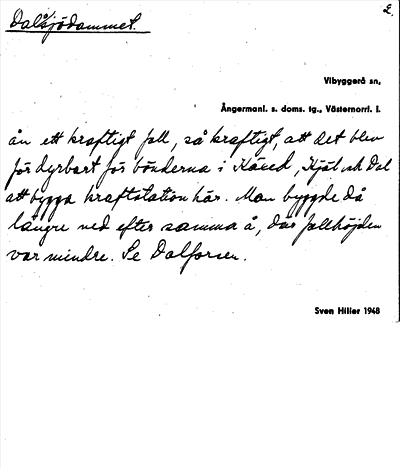 Dalsjödammet.
2.
Vibyggerå sn,
Ångermanl. s. doms. tg., Västernorrl. l.
ån ett kraftigt fall, så kraftigt, att det blev
för dyrbart för bönderna i Käxed, Kjäl och Dal
att bygga kraftstation här. Man byggde då
längre ned efter samma å, där fallhöjden
var mindre. Se Dalforsen.
Sven Hiller 1948